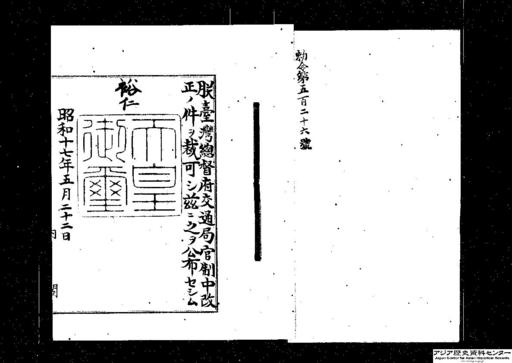 勅令第五百二十六號
朕臺灣總督府交通局官制中改
正ノ件ヲ裁可シ茲ニ之ヲ公布セシム
裕仁
天皇御璽
昭和十七年五月二十二日
内閣
アジア歴史資料センター
Japan Center for Asian Historical Records